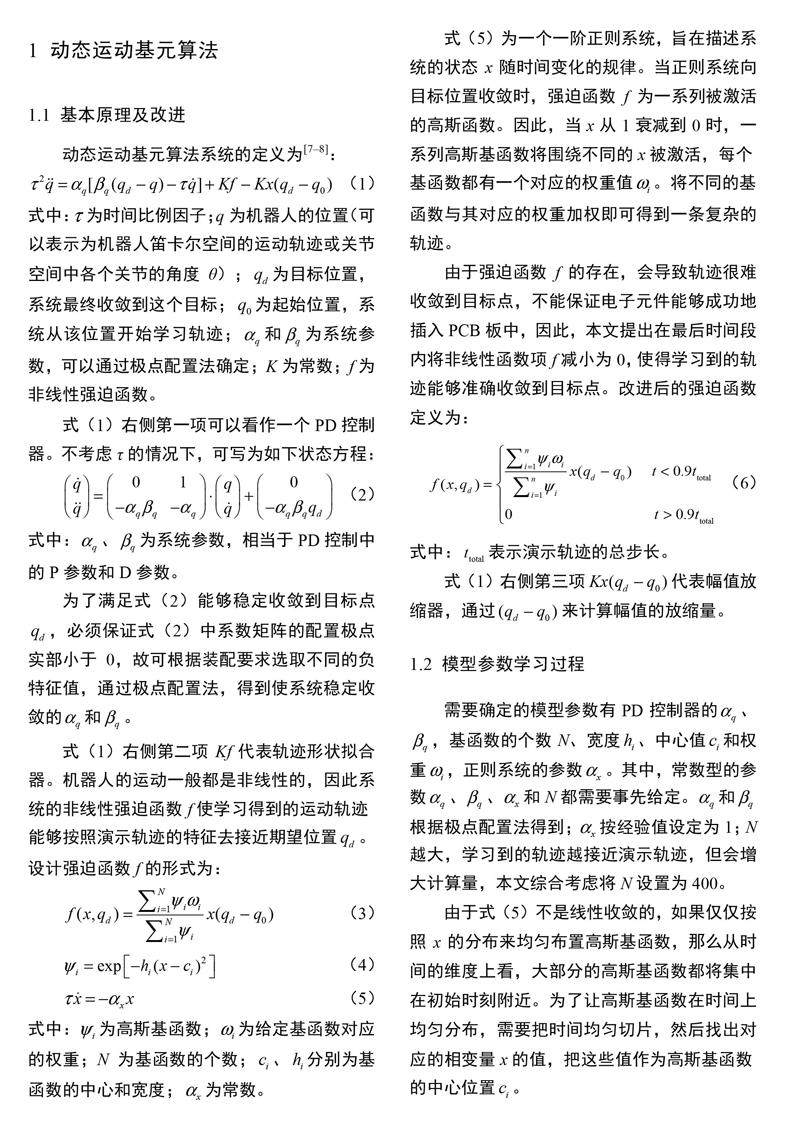 1 动态运动基元算法
1.1 基本原理及改进
动态运动基元算法系统的定义为[7–8]：
τ²q̈ = α_q[β_q(q_d − q) − τq̇] + Kf − Kx(q_d − q_0) （1）
式中：τ 为时间比例因子；q 为机器人的位置（可
以表示为机器人笛卡尔空间的运动轨迹或关节
空间中各个关节的角度 θ）；q_d 为目标位置，
系统最终收敛到这个目标；q_0 为起始位置，系
统从该位置开始学习轨迹；α_q 和 β_q 为系统参
数，可以通过极点配置法确定；K 为常数；f 为
非线性强迫函数。
式（1）右侧第一项可以看作一个 PD 控制
器。不考虑 τ 的情况下，可写为如下状态方程：
(q̇ ; q̈) = (0 1 ; −α_qβ_q −α_q) · (q ; q̇) + (0 ; −α_qβ_qq_d) （2）
式中：α_q 、β_q 为系统参数，相当于 PD 控制中
的 P 参数和 D 参数。
为了满足式（2）能够稳定收敛到目标点
q_d ，必须保证式（2）中系数矩阵的配置极点
实部小于 0，故可根据装配要求选取不同的负
特征值，通过极点配置法，得到使系统稳定收
敛的 α_q 和 β_q 。
式（1）右侧第二项 Kf 代表轨迹形状拟合
器。机器人的运动一般都是非线性的，因此系
统的非线性强迫函数 f 使学习得到的运动轨迹
能够按照演示轨迹的特征去接近期望位置 q_d 。
设计强迫函数 f 的形式为：
f(x,q_d) = (∑_{i=1}^{N} ψ_iω_i / ∑_{i=1}^{N} ψ_i) x(q_d − q_0) （3）
ψ_i = exp[−h_i(x − c_i)²] （4）
τẋ = −α_x x （5）
式中：ψ_i 为高斯基函数；ω_i 为给定基函数对应
的权重；N 为基函数的个数；c_i 、h_i 分别为基
函数的中心和宽度；α_x 为常数。
式（5）为一个一阶正则系统，旨在描述系
统的状态 x 随时间变化的规律。当正则系统向
目标位置收敛时，强迫函数 f 为一系列被激活
的高斯函数。因此，当 x 从 1 衰减到 0 时，一
系列高斯基函数将围绕不同的 x 被激活，每个
基函数都有一个对应的权重值 ω_i 。将不同的基
函数与其对应的权重加权即可得到一条复杂的
轨迹。
由于强迫函数 f 的存在，会导致轨迹很难
收敛到目标点，不能保证电子元件能够成功地
插入 PCB 板中，因此，本文提出在最后时间段
内将非线性函数项 f 减小为 0，使得学习到的轨
迹能够准确收敛到目标点。改进后的强迫函数
定义为：
f(x,q_d) = { (∑_{i=1}^{n} ψ_iω_i / ∑_{i=1}^{n} ψ_i) x(q_d − q_0) t < 0.9t_total ; 0 t > 0.9t_total （6）
式中：t_total 表示演示轨迹的总步长。
式（1）右侧第三项 Kx(q_d − q_0) 代表幅值放
缩器，通过 (q_d − q_0) 来计算幅值的放缩量。
1.2 模型参数学习过程
需要确定的模型参数有 PD 控制器的 α_q 、
β_q ，基函数的个数 N、宽度 h_i 、中心值 c_i 和权
重 ω_i ，正则系统的参数 α_x 。其中，常数型的参
数 α_q 、β_q 、α_x 和 N 都需要事先给定。α_q 和 β_q
根据极点配置法得到；α_x 按经验值设定为 1；N
越大，学习到的轨迹越接近演示轨迹，但会增
大计算量，本文综合考虑将 N 设置为 400。
由于式（5）不是线性收敛的，如果仅仅按
照 x 的分布来均匀布置高斯基函数，那么从时
间的维度上看，大部分的高斯基函数都将集中
在初始时刻附近。为了让高斯基函数在时间上
均匀分布，需要把时间均匀切片，然后找出对
应的相变量 x 的值，把这些值作为高斯基函数
的中心位置 c_i 。